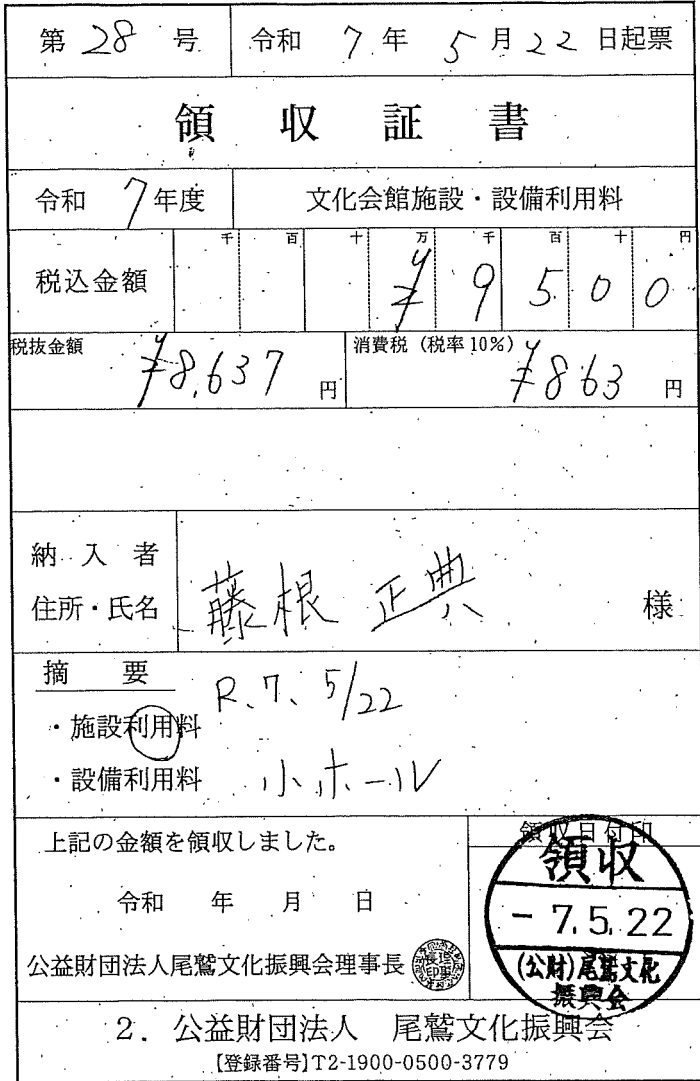 第 28 号 令和 7 年 5 月 22 日起票
領収証書
令和 7 年度 文化会館施設・設備利用料
千 百 十 万 千 百 十 円
税込金額 ¥ 9 5 0 0
税抜金額 ¥8,637 円 消費税（税率10％） ¥863 円
納入者
住所・氏名 藤根 正典 様
摘要 R.7.5/22
・施設利用料
・設備利用料 小ホール
上記の金額を領収しました。 領収日付印
令和 年 月 日
公益財団法人尾鷲文化振興会理事長
領収
- 7.5.22
(公財)尾鷲文化
振興会
2．公益財団法人 尾鷲文化振興会
【登録番号】T2-1900-0500-3779